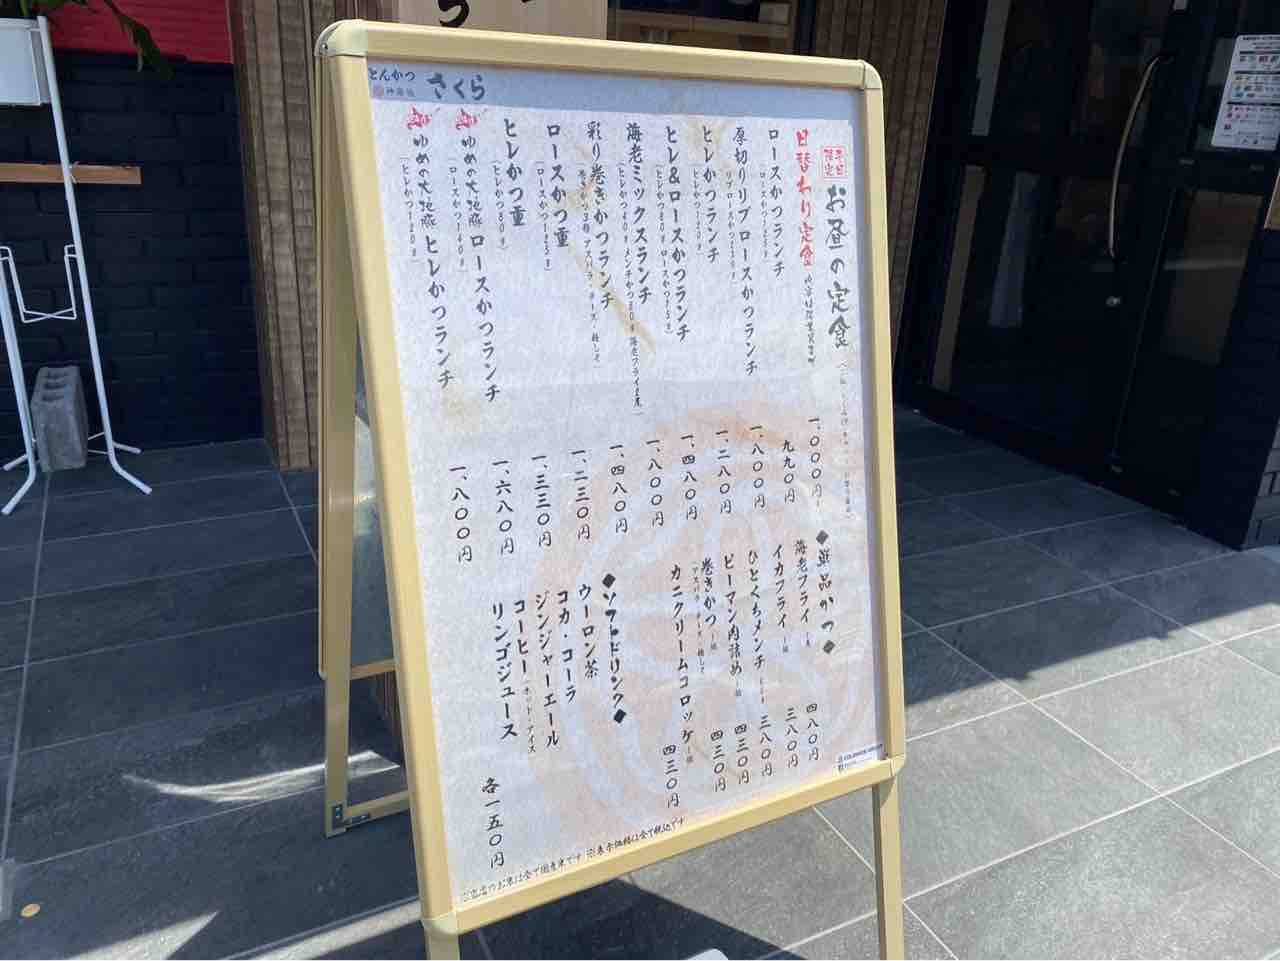 とんかつ
神楽坂
さくら
平日
限定
お昼の定食
日替わり定食
一、〇〇〇円
ロースかつランチ
(ロースかつ125g)
九九〇円
厚切りリブロースかつランチ
一、八〇〇円
ヒレかつランチ
(ヒレかつ120g)
一、二八〇円
ヒレ&ロースかつランチ
一、四八〇円
海老ミックスランチ
(ヒレかつ40g メンチかつ80g 海老フライ2尾)
一、八〇〇円
彩り巻きかつランチ
(巻きかつ3種 アスパラ・チーズ・梅しそ)
一、四八〇円
ロースかつ重
(ロースかつ125g)
一、二三〇円
ヒレかつ重
(ヒレかつ80g)
一、三三〇円
ゆめの大地豚 ロースかつランチ
(ロースかつ140g)
一、六八〇円
ゆめの大地豚 ヒレかつランチ
(ヒレかつ120g)
一、八〇〇円
◆単品かつ◆
海老フライ
四八〇円
イカフライ
三八〇円
ひとくちメンチ
三八〇円
ピーマン肉詰め
四三〇円
巻きかつ
(アスパラ・チーズ・梅しそ)
四三〇円
カニクリームコロッケ
四三〇円
◆ソフトドリンク◆
ウーロン茶
コカ・コーラ
ジンジャーエール
コーヒー(ホット・アイス)
リンゴジュース
各一五〇円
※当店のお米は全て国産米です ※表示価格は全て税込です